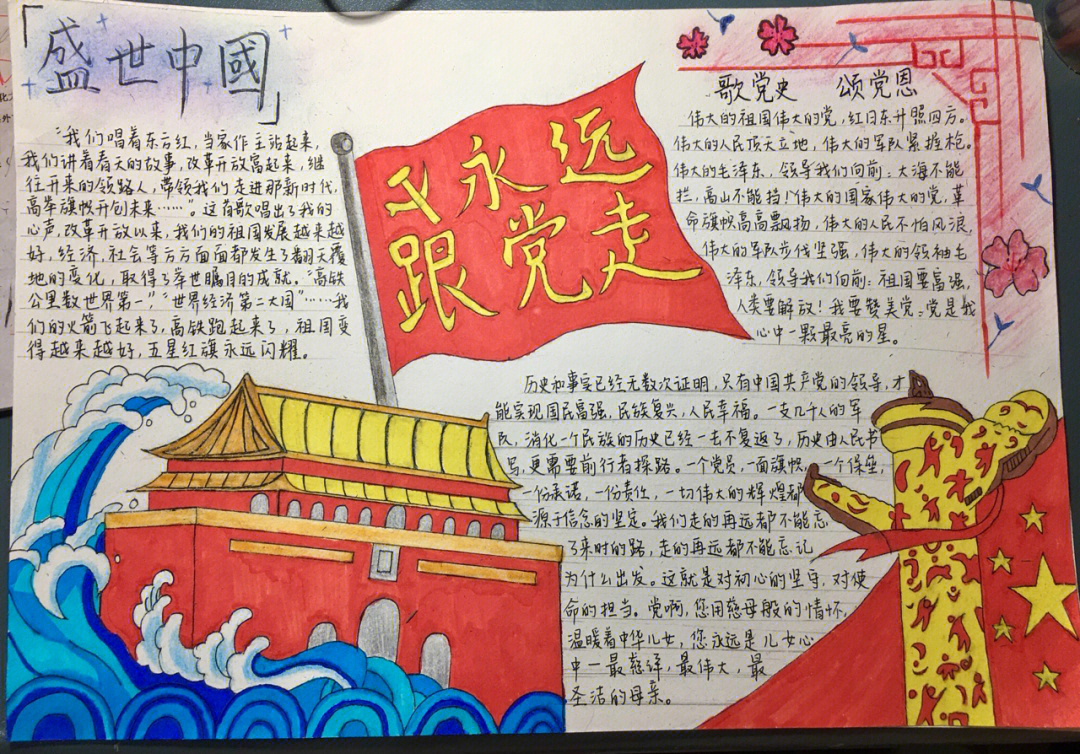 「盛世中國」
“我们唱着东方红,当家作主站起来,
我们讲着春天的故事,改革开放富起来,继
往开来的领路人,带领我们走进那新时代,
高举旗帜开创未来……”。这首歌唱出了我的
心声,改革开放以来,我们的祖国发展越来越
好,经济,社会等方方面面都发生了翻天覆
地的变化,取得了举世瞩目的成就。“高铁
公里数世界第一”,“世界经济第二大国”……我
们的火箭飞起来了,高铁跑起来了,祖国变
得越来越好,五星红旗永远闪耀。
永远
跟党走
歌党史 颂党恩
伟大的祖国伟大的党,红日东升照四方。
伟大的人民顶天立地,伟大的军队紧握枪。
伟大的毛泽东,领导我们向前:大海不能
拦,高山不能挡!伟大的国家伟大的党,革
命旗帜高高飘扬,伟大的人民不怕风浪,
伟大的军队步伐坚强,伟大的领袖毛
泽东,领导我们向前:祖国要富强,
人类要解放!我要赞美党:党是我
心中一颗最亮的星。
历史和事实已经无数次证明,只有中国共产党的领导,才
能实现国民富强,民族复兴,人民幸福。一支几千人的军
队,消化一个民族的历史已经一去不复返了,历史由人民书
写,更需要前行者探路。一个党员,一面旗帜,一个保垒,
一份承诺,一份责任,一切伟大的辉煌都
源于信念的坚定。我们走的再远都不能忘
了来时的路,走的再远都不能忘记
为什么出发。这就是对初心的坚守,对使
命的担当。党啊,您用慈母般的情怀,
温暖着中华儿女,您永远是儿女心
中一最慈祥,最伟大,最
圣洁的母亲。